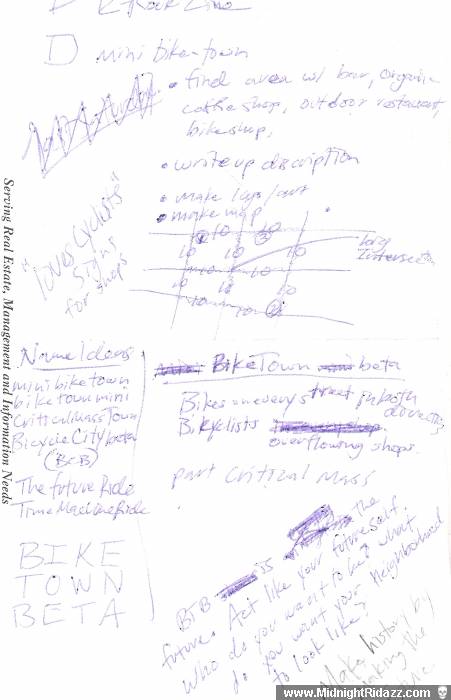 D mini bike-town
• find area w/ bar, organic
coffee shop, outdoor restaurant,
bikeshop,
• write up description
• make map
10 10
10 10 10
10 10
10 10 10
10 10
"loves cyclists"
signs
for shops
Serving Real Estate, Management and Information Needs
Name Ideas
mini bike town
bike town mini
Critical Mass Town
Bicycle City beta
(BCB)
The future Ride
Time Machine Ride
BIKE
TOWN
BETA
BikeTown beta
Bikes on every street in both
directions
Bicyclists
overflowing shops.
part Critical Mass
BTB is the
future. Act like your future self.
Who do you want to be? What
do you want your neighborhood
to look like?
Make history by
making the
www.MidnightRidazz.com